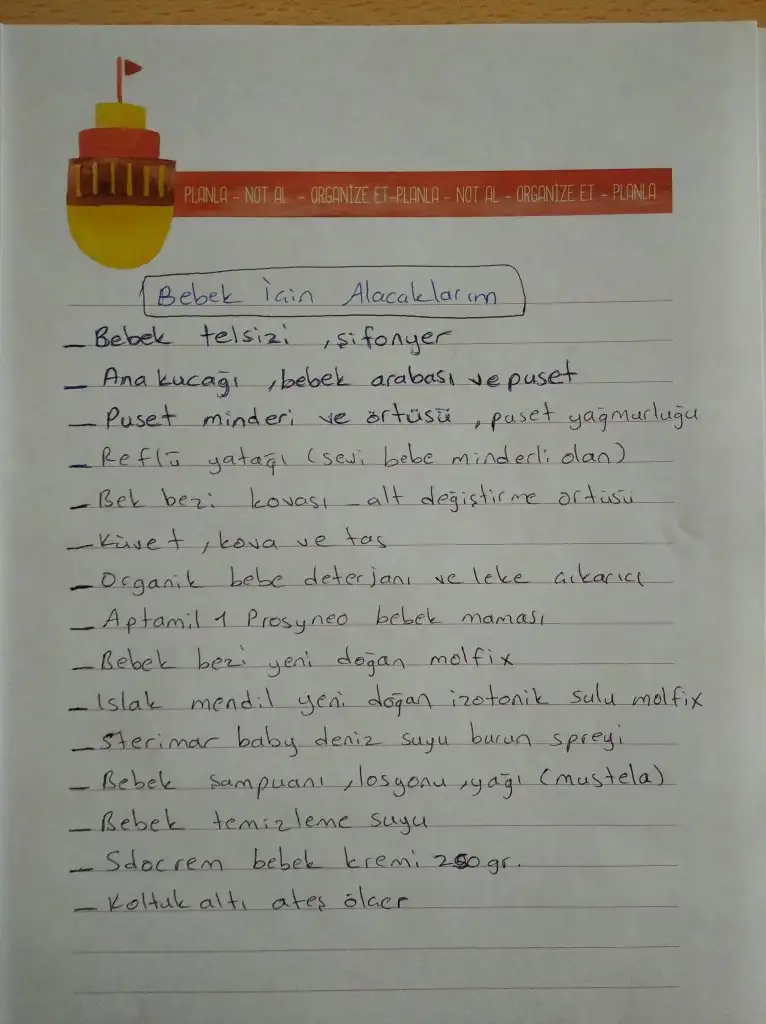 PLANLA - NOT AL - ORGANİZE ET-PLANLA - NOT AL - ORGANİZE ET - PLANLA
Bebek İçin Alacaklarım
- Bebek telsizi, şifonyer
- Ana kucağı, bebek arabası ve puset
- Puset minderi ve örtüsü, puset yağmurluğu
- Reflü yatağı (sevi bebe minderli olan)
- Bek bezi kovası - alt değiştirme örtüsü
- Küvet, kova ve tas
- Organik bebe deterjanı ve leke çıkarıcı
- Aptamil 1 Prosyneo bebek maması
- Bebek bezi yeni doğan molfix
- Islak mendil yeni doğan izotonik sulu molfix
- Sterimar baby deniz suyu burun spreyi
- Bebek şampuanı, losyonu, yağı (mustela)
- Bebek temizleme suyu
- Sdocrem bebek kremi 250 gr.
- Koltuk altı ateş ölçer